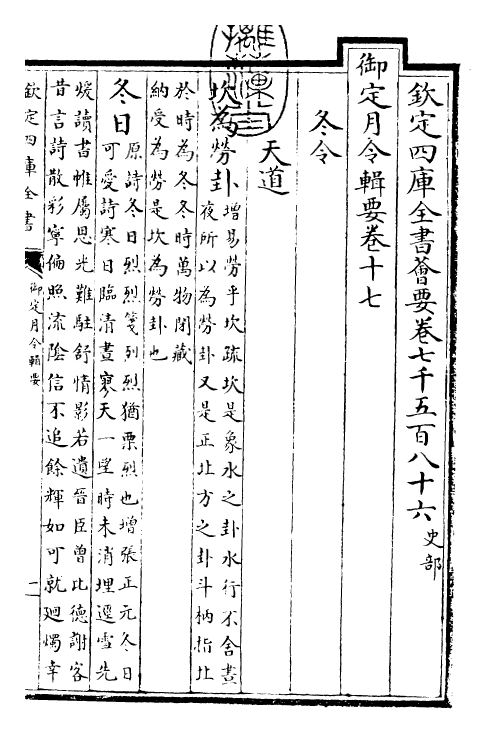 欽定四庫全書薈要卷七千五百八十六 史部
御定月令輯要卷十七
冬令
天道
坎為勞卦 增易勞乎坎疏坎是象水之卦水行不舍晝
夜所以為勞卦又是正北方之卦斗柄指北
於時為冬冬時萬物閉藏
納受為勞是坎為勞卦也
冬日 原詩冬日烈烈箋列烈猶栗烈也增張正元冬日
可愛詩寒日臨清晝寥天一望時未消埋逕雪先
煖讀書帷屬思光難駐舒情影若遺晉臣曾比德謝客
昔言詩散彩寧偏照流陰信不追餘輝如可就迴燭幸
欽定四庫全書
御定月令輯要
一